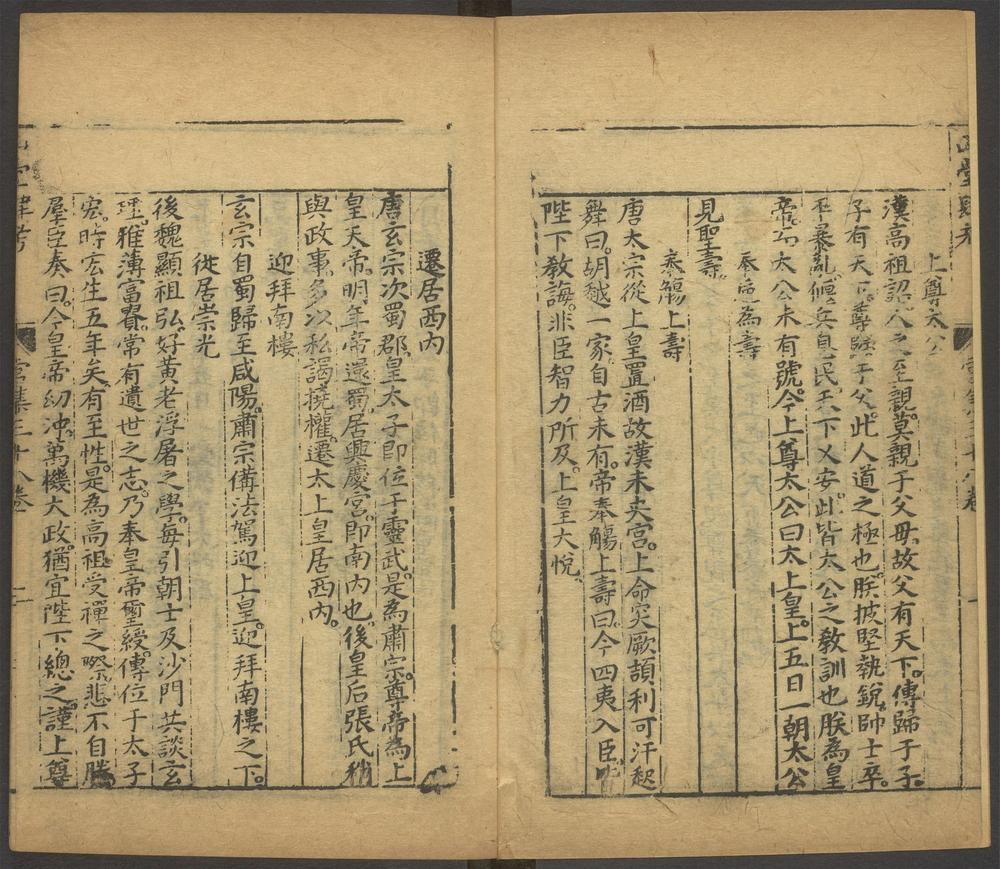 上尊太公
漢高祖詔人之至親莫親于父母故父有天下傳歸于子
子有天下尊歸于父此人道之極也朕披堅執銳帥士卒
平暴亂偃兵息民天下乂安此皆太公之教訓也朕為皇
帝而太公未有號今上尊太公曰太上皇上五日一朝太公
奉 為壽
見聖壽
奉觴上壽
唐太宗從上皇置酒故漢未央宮上命突厥頡利可汗起
舞曰胡越一家自古未有帝奉觴上壽曰今四夷入臣
陛下教誨非臣智力所及上皇大悅
遷居西內
唐玄宗次蜀郡皇太子即位于靈武是為肅宗尊帝為上
皇天帝明年帝還蜀居興慶宮即南內也後皇后張氏稍
與政事多以私謁撓權遷太上皇居西內
迎拜南樓
玄宗自蜀歸至咸陽肅宗備法駕迎上皇迎拜南樓之下
徙居崇光
後魏顯祖弘好黃老浮屠之學每引朝士及沙門共談玄
理雅薄富貴常有遺世之志乃奉皇帝璽綬傳位于太子
宏時宏生五年矣有至性是為高祖受禪之際悲不自勝
羣臣奏曰今皇帝幼沖萬機大政猶宜陛下總之謹上尊
宮集三十八卷